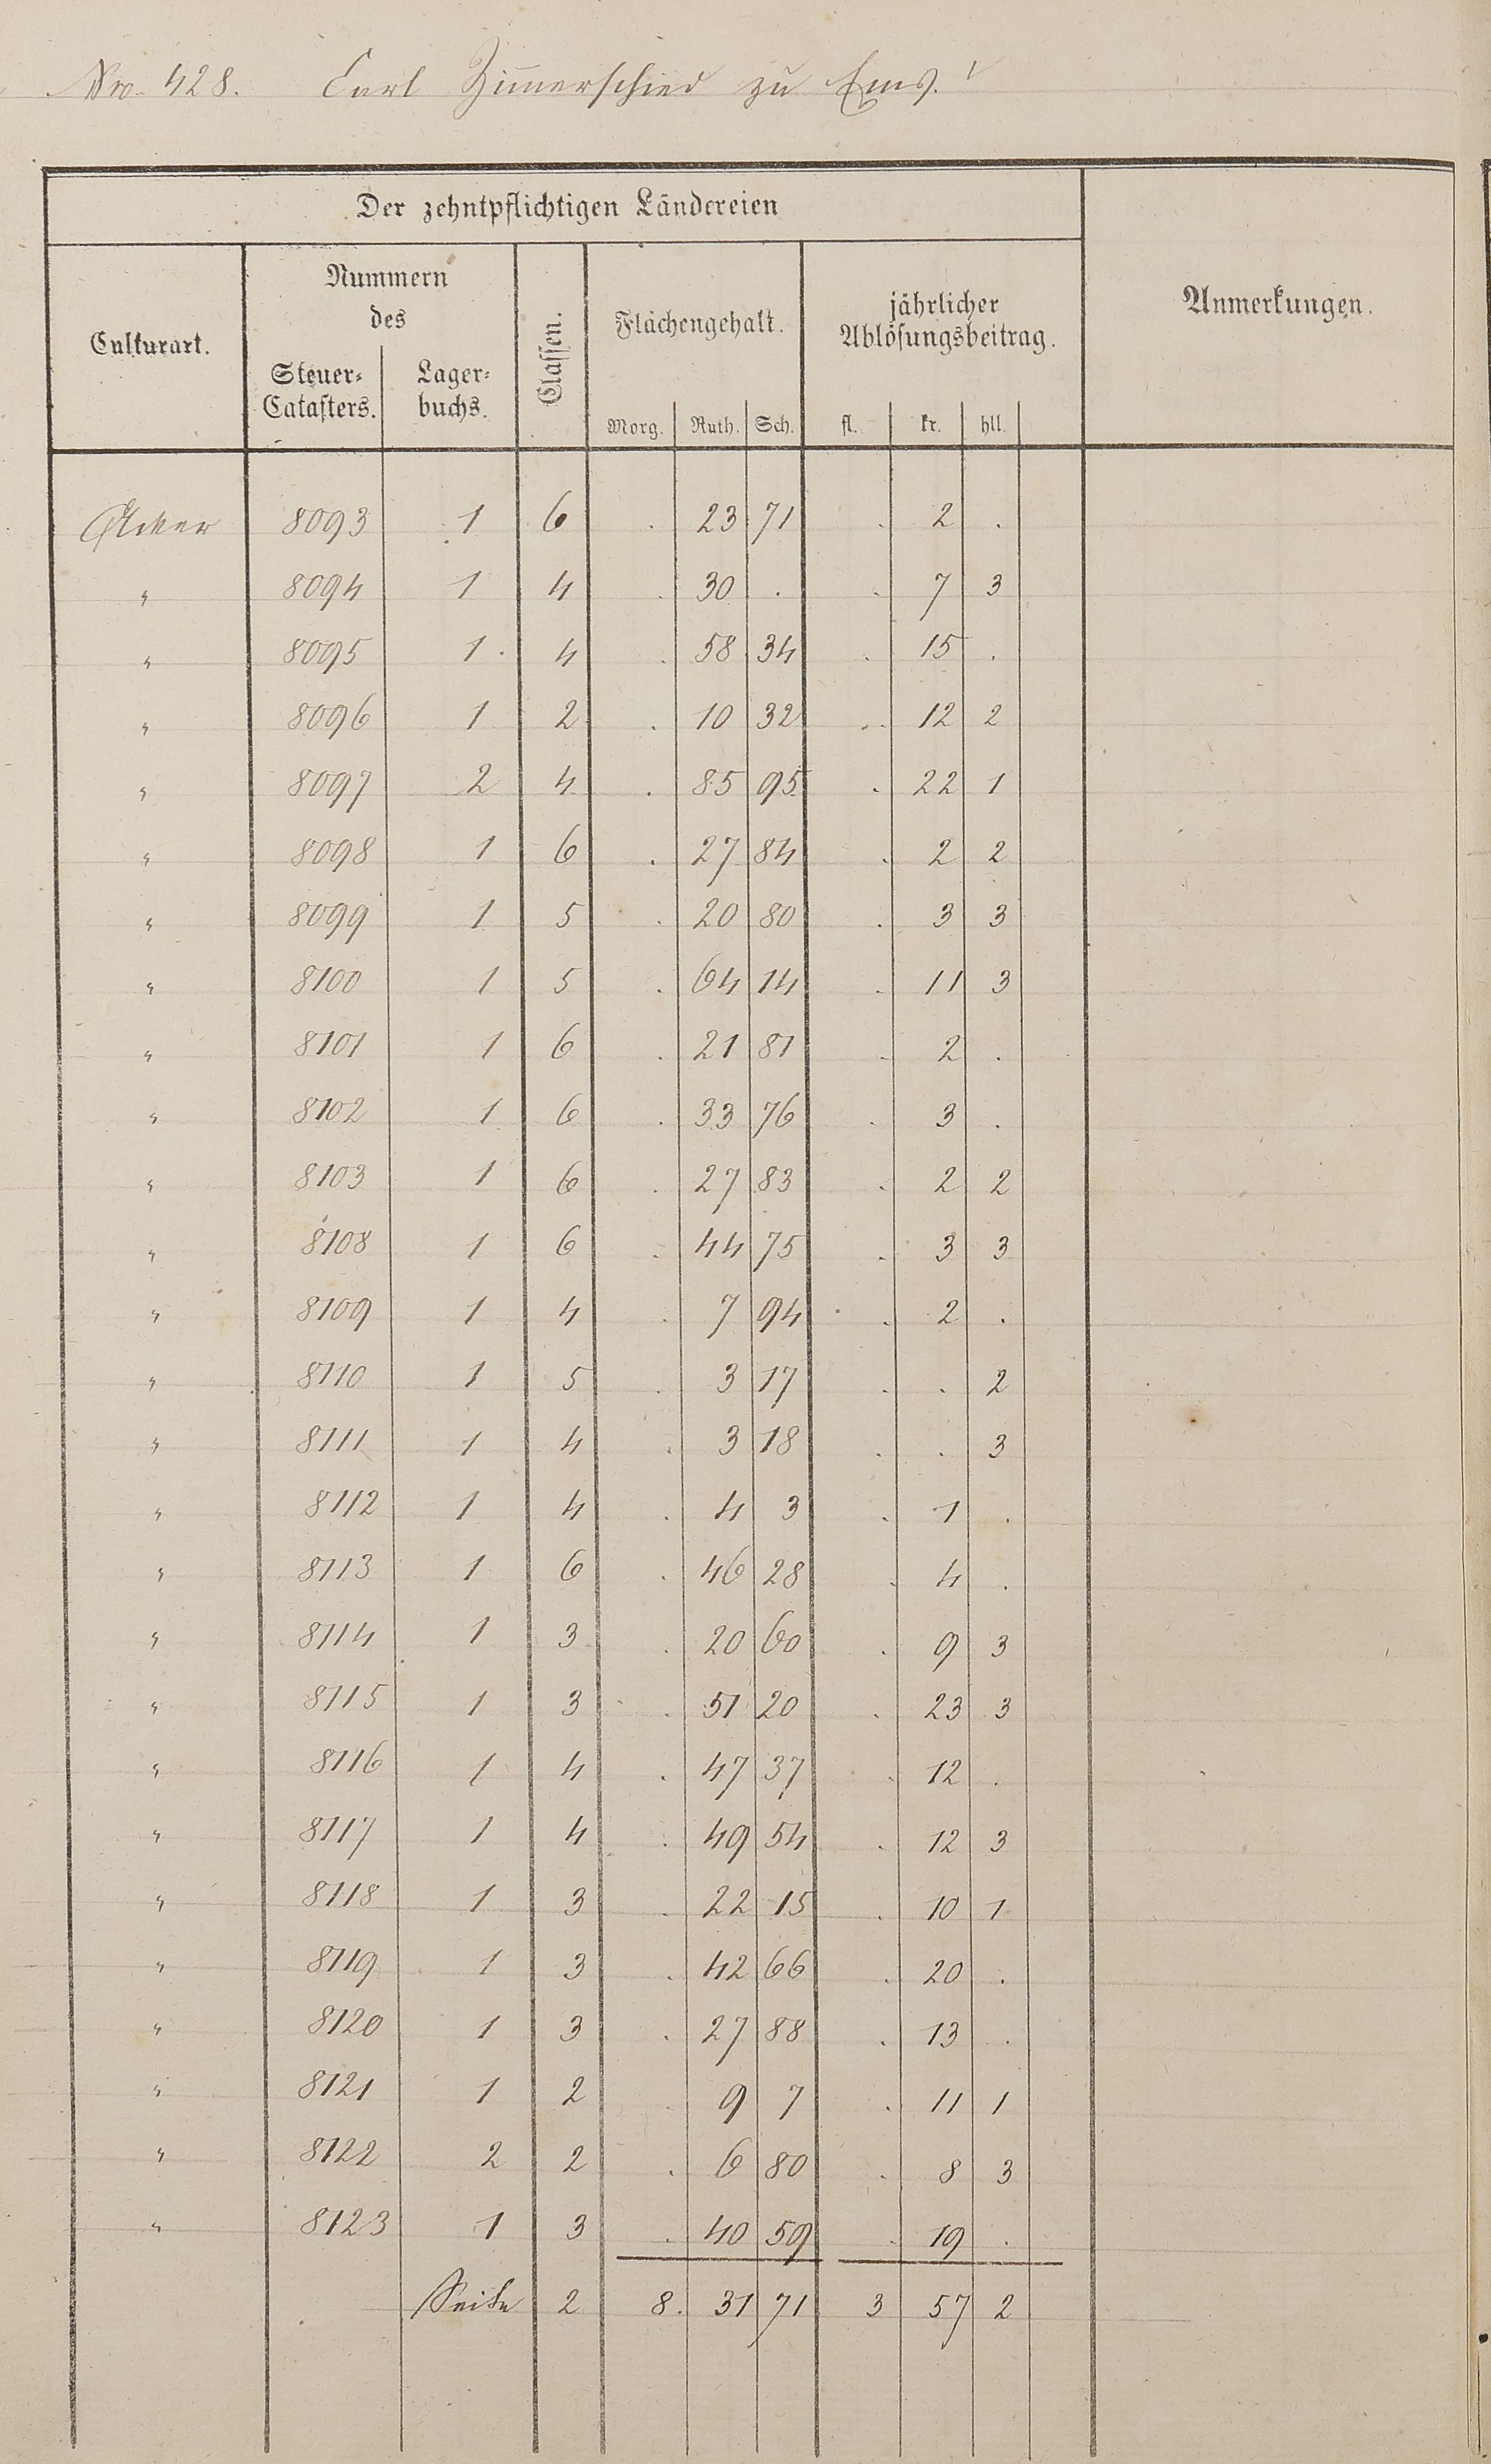 Nro. 428. Carl Zimerschied zu Ems.
Der zehntpflichtigen Ländereien
Culturart.
Nummern
des
Steuer-
Catasters.
Lager-
buchs.
Classen.
Flächengehalt.
Morg. Ruth. Sch.
jährlicher
Ablösungsbeitrag.
fl. kr. hll.
Anmerkungen.
Acker 8093 1 6 . 23 71 . 2 .
" 8094 1 4 . 30 . . 7 3
" 8095 1 4 . 58 34 . 15 .
" 8096 1 2 . 10 32 . 12 2
" 8097 2 4 . 85 95 . 22 1
" 8098 1 6 . 27 84 . 2 2
" 8099 1 5 . 20 80 . 3 3
" 8100 1 5 . 64 14 . 11 3
" 8101 1 6 . 21 81 . 2 .
" 8102 1 6 . 33 76 . 3 .
" 8103 1 6 . 27 83 . 2 2
" 8108 1 6 . 44 75 . 3 3
" 8109 1 4 . 7 94 . 2 .
" 8110 1 5 . 3 17 . . 2
" 8111 1 4 . 3 18 . . 3
" 8112 1 4 . 4 3 . 1 .
" 8113 1 6 . 46 28 . 4 .
" 8114 1 3 . 20 60 . 9 3
" 8115 1 3 . 51 20 . 23 3
" 8116 1 4 . 47 37 . 12 .
" 8117 1 4 . 49 54 . 12 3
" 8118 1 3 . 22 15 . 10 1
" 8119 1 3 . 42 66 . 20 .
" 8120 1 3 . 27 88 . 13 .
" 8121 1 2 . 9 7 . 11 1
" 8122 2 2 . 6 80 . 8 3
" 8123 1 3 . 40 59 . 19 .
Seite 2 8. 31 71 3 57 2